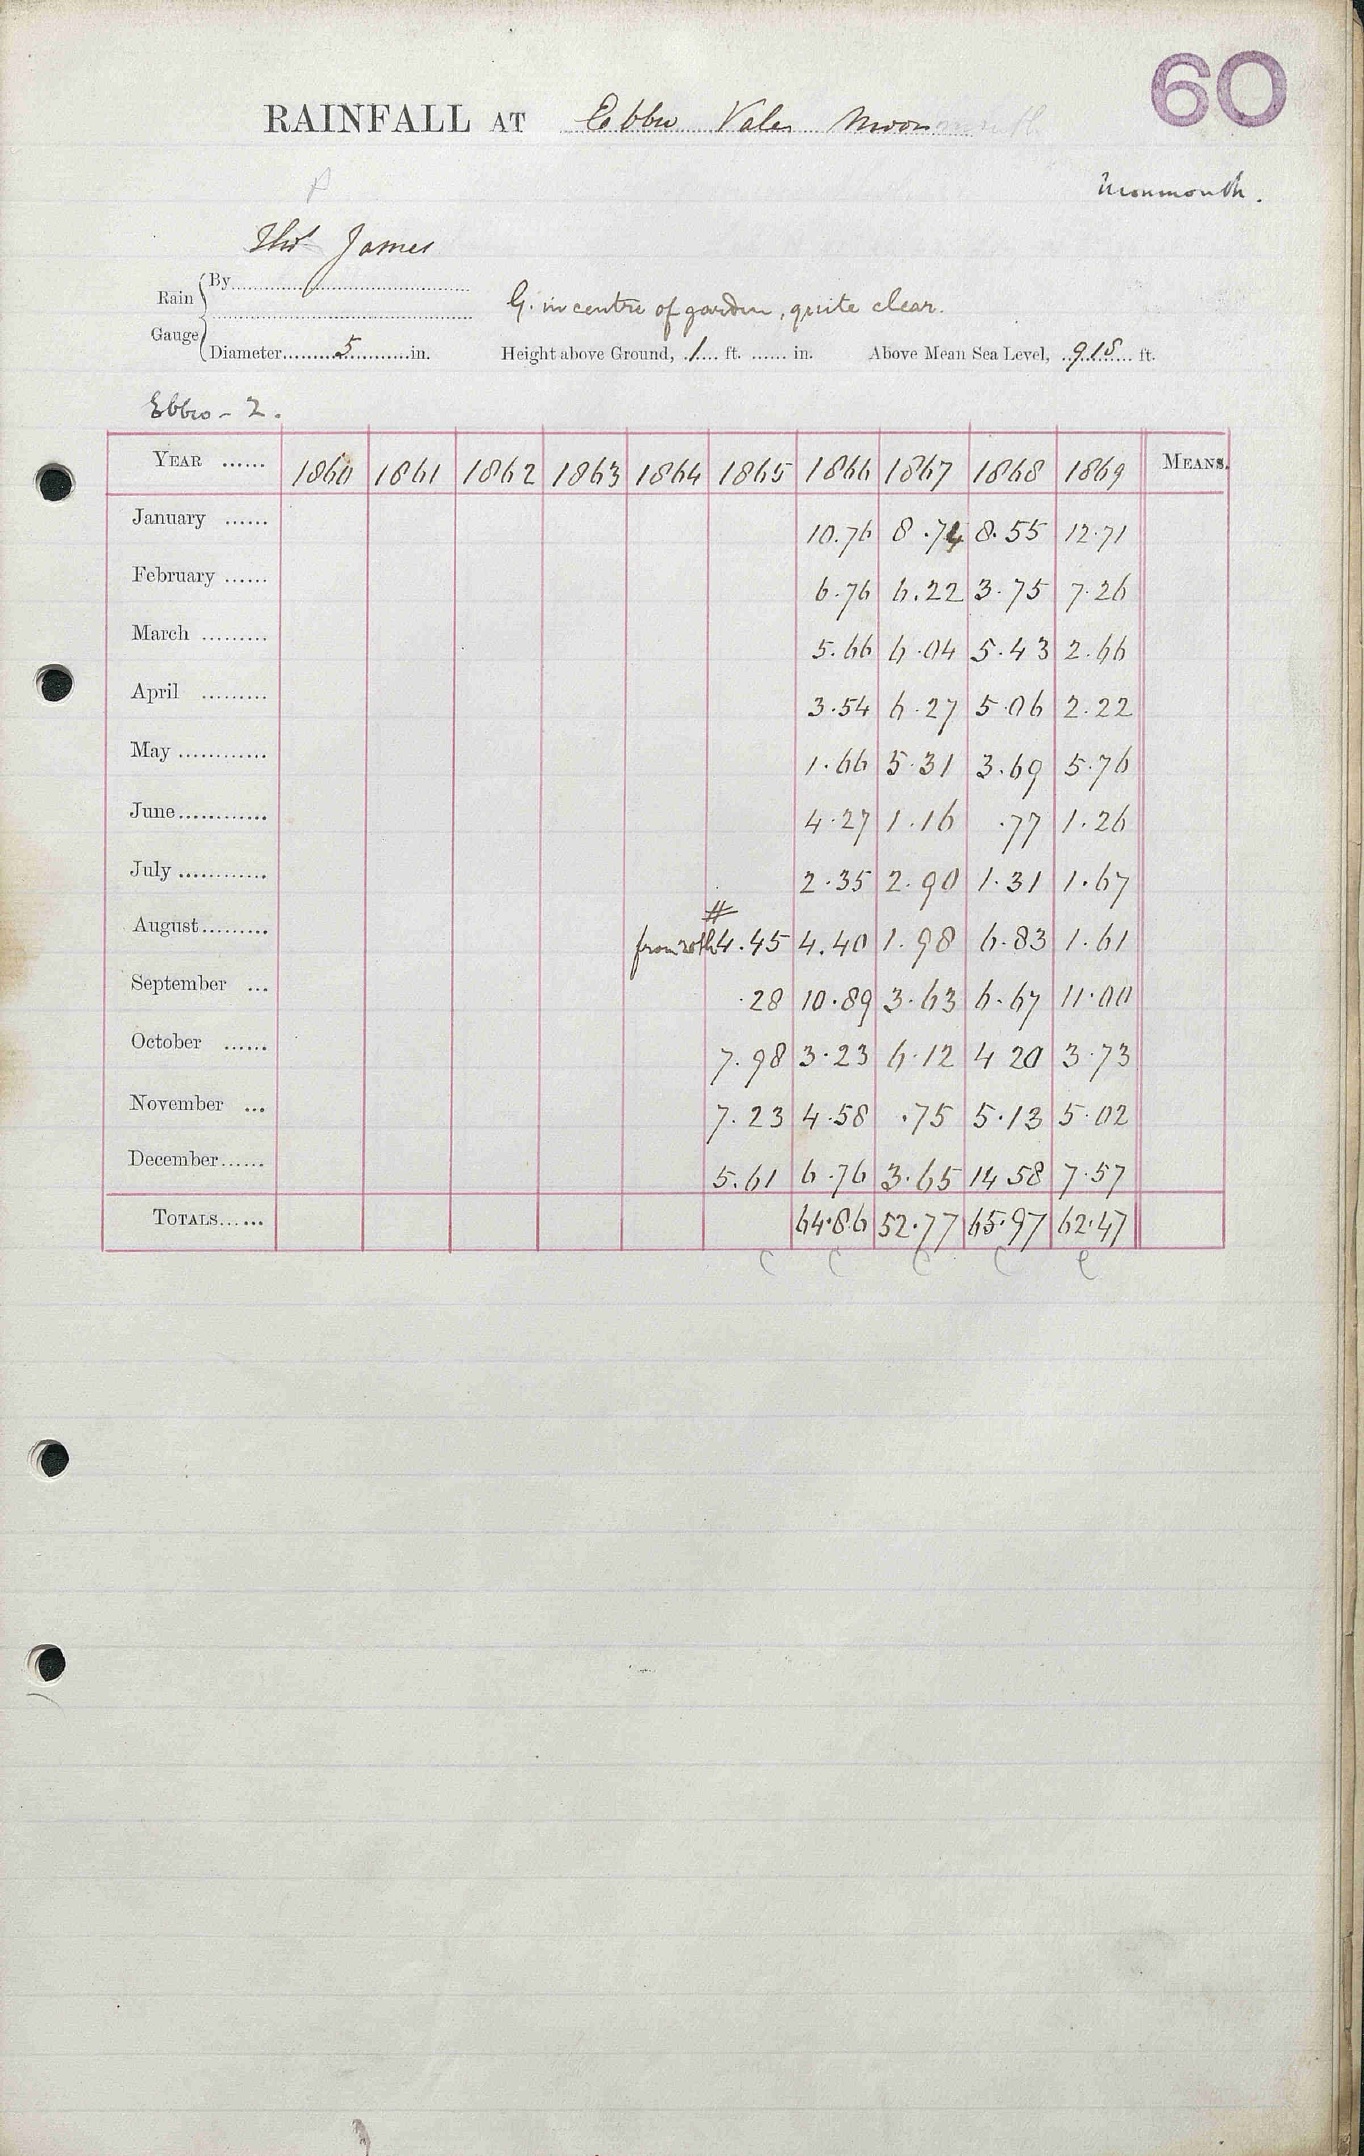 60
RAINFALL AT Ebbw Vale, Monmouth
Monmouth.
Thos James
Rain Gauge { By
Diameter 5 in.
G. in centre of garden, quite clear.
Height above Ground, 1 ft. in. Above Mean Sea Level, 915 ft.
Ebbw - 2.
YEAR 1860 1861 1862 1863 1864 1865 1866 1867 1868 1869 MEANS.
January 10.76 8.74 8.55 12.71
February 6.76 6.22 3.75 7.26
March 5.66 6.04 5.43 2.66
April 3.54 6.27 5.06 2.22
May 1.66 5.31 3.69 5.76
June 4.27 1.16 .77 1.26
July 2.35 2.90 1.31 1.67
#
August from 20th 4.45 4.40 1.98 6.83 1.61
September .28 10.89 3.63 6.67 11.00
October 7.98 3.23 6.12 4 20 3.73
November 7.23 4.58 .75 5.13 5.02
December 5.61 6.76 3.65 14 58 7.57
TOTALS 64.86 52.77 65.97 62.47
C C C C C